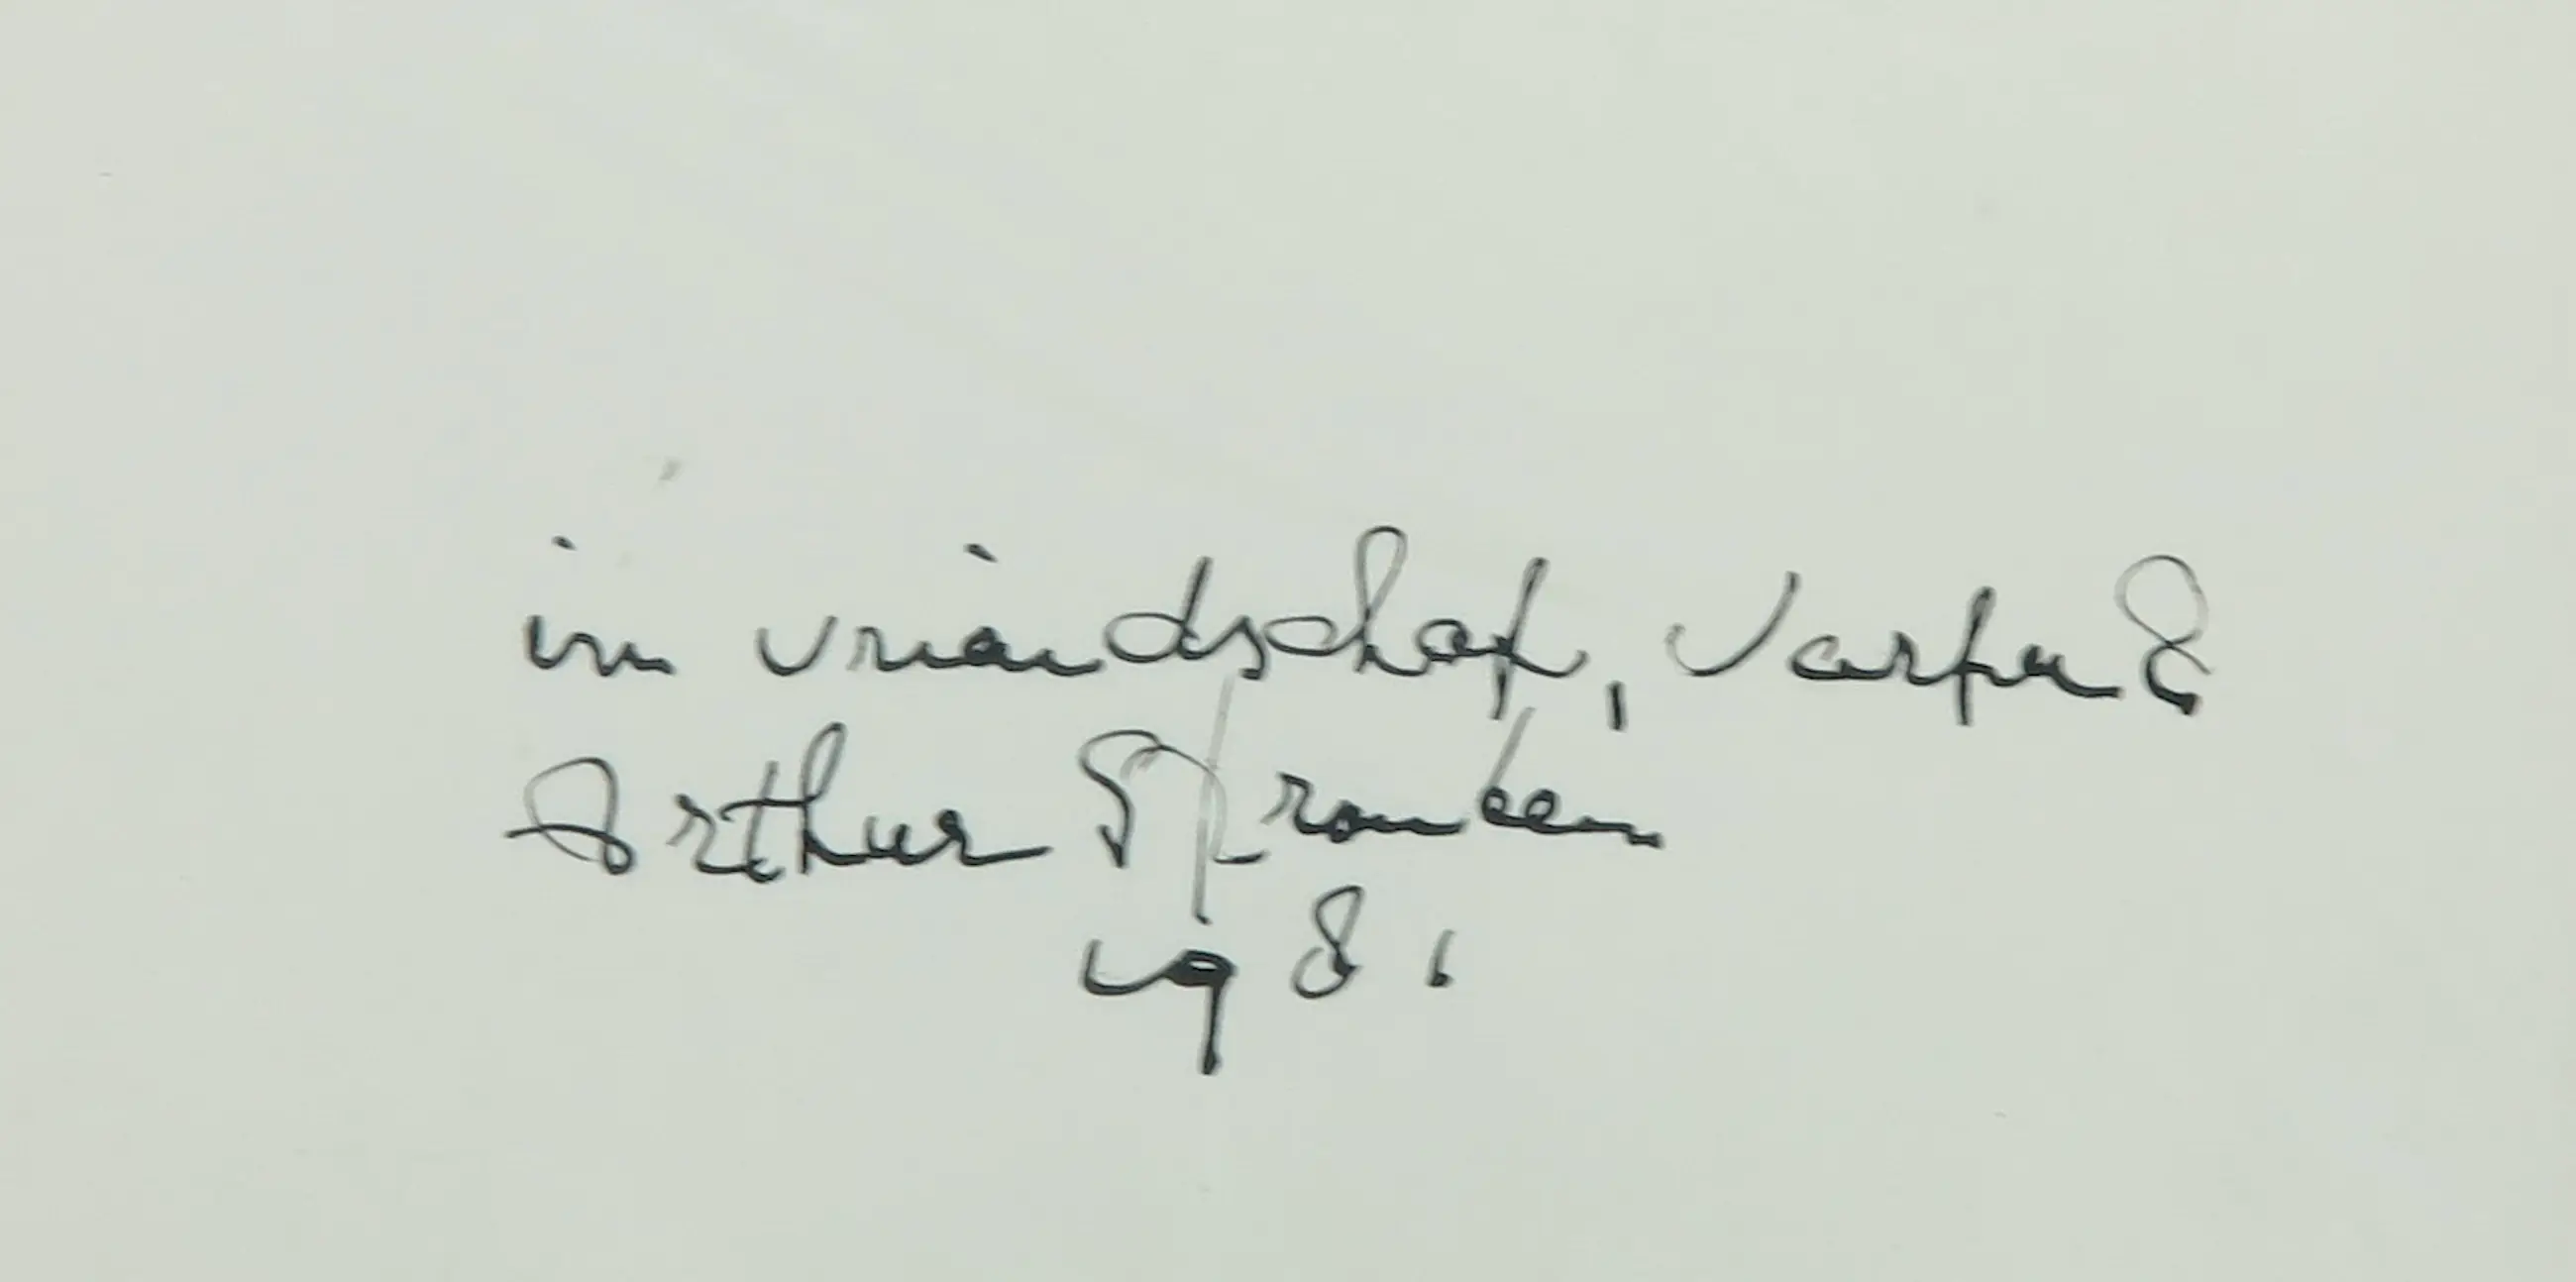 in vriendschap, Varpu &
Arthur Spronken
1981